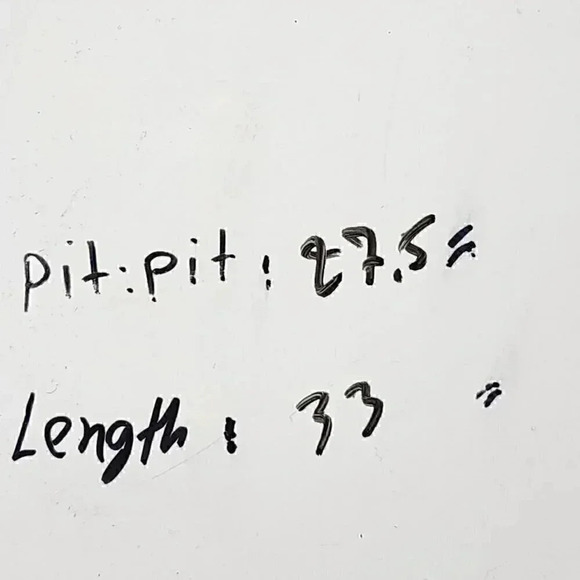 pit:pit: 27.5"
Length: 33 "